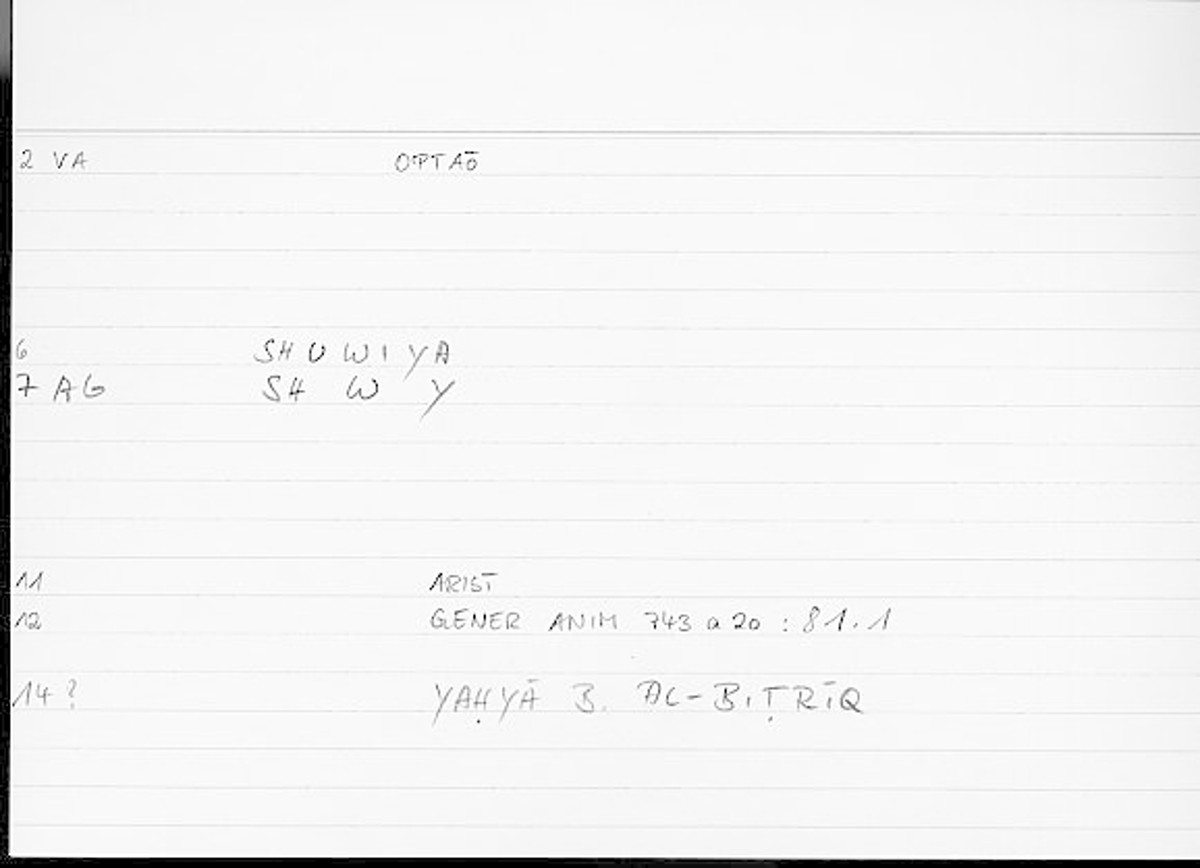 2 VA OPTAŌ
6 SHUWIYA
7 AG SH W Y
11 ARIST
12 GENER ANIM 743 a 20 : 81.1
14 ? YAḤYĀ B. AL-BIṬRĪQ